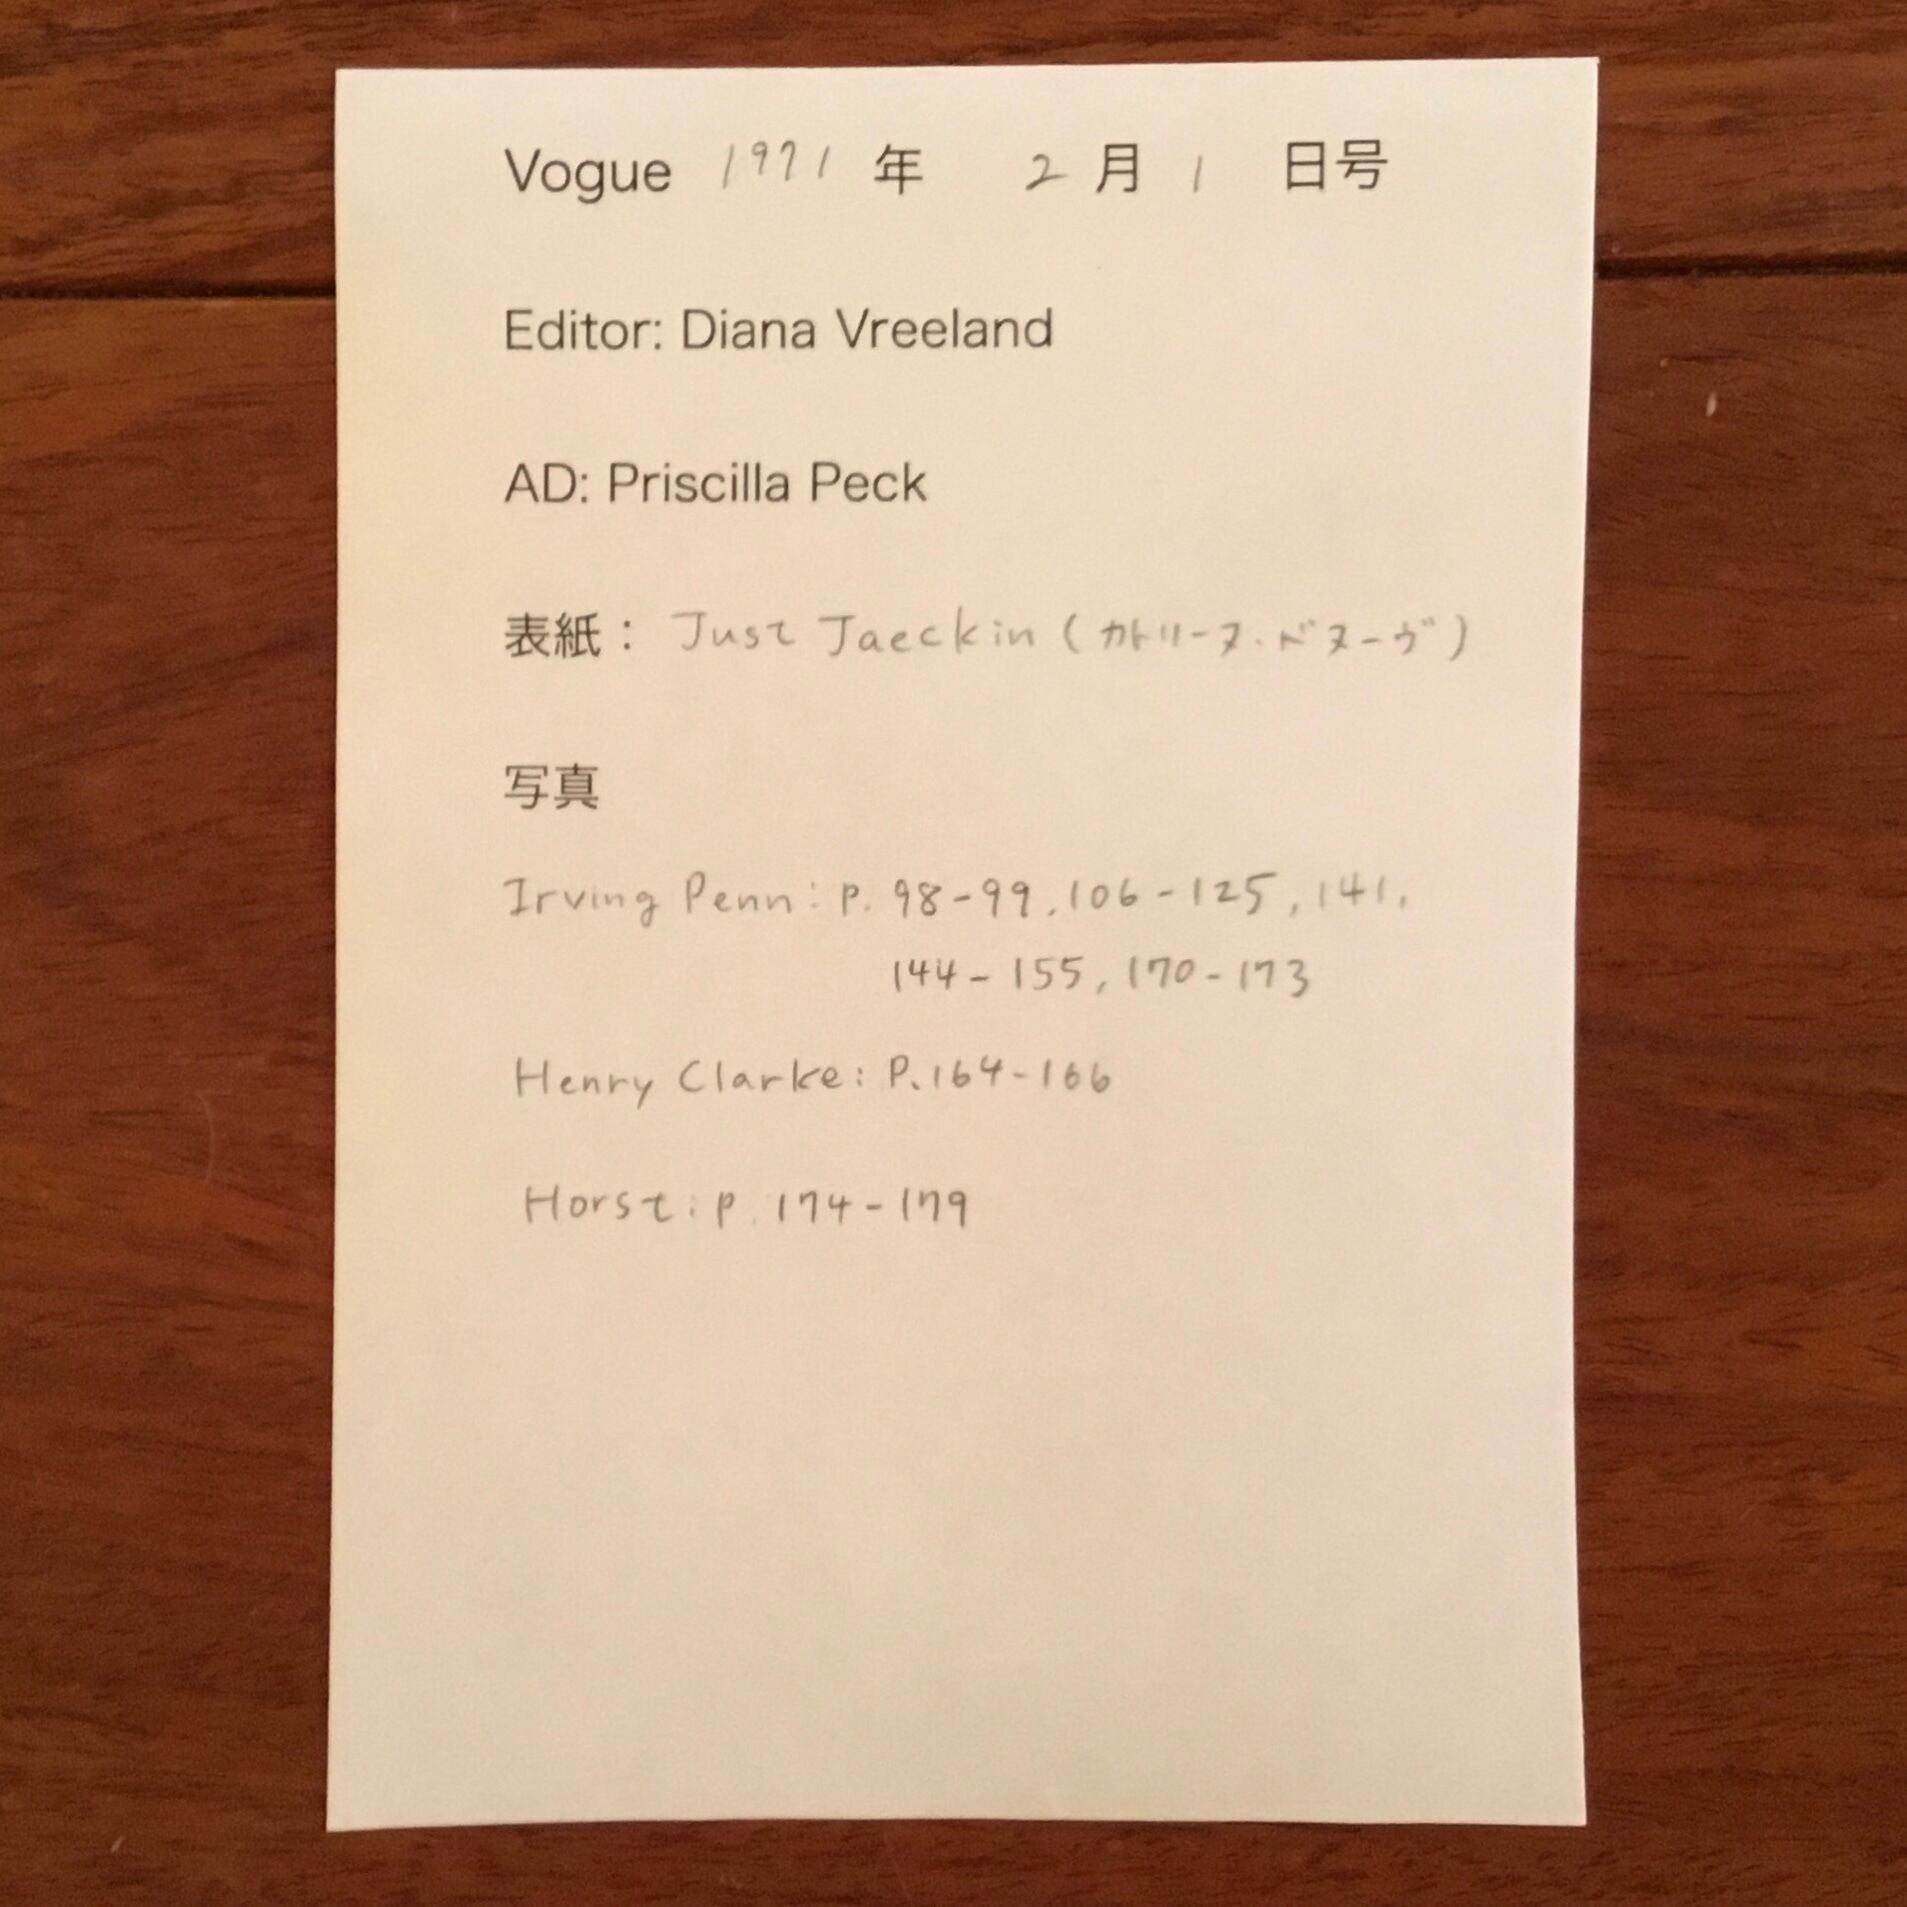 Vogue 1971 年 2 月 1 日号
Editor: Diana Vreeland
AD: Priscilla Peck
表紙： Just Jaeckin (カトリーヌ・ドヌーヴ)
写真
Irving Penn: P. 98-99, 106-125, 141,
144-155, 170-173
Henry Clarke: P. 164-166
Horst: P. 174-179